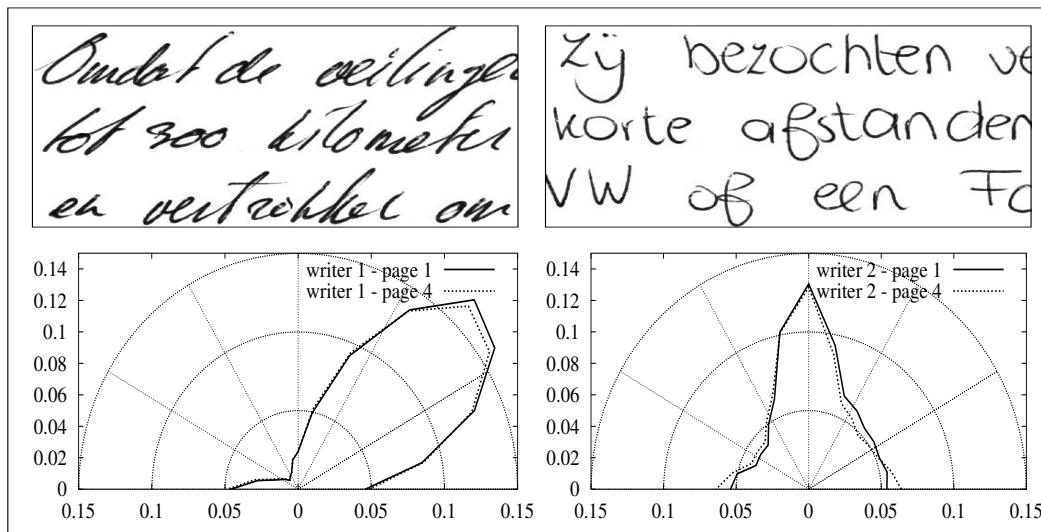 Omdat de veilingen
tot 300 kilometer
en vertrokken om
Zij bezochten ve
korte afstanden
VW of een Fo
writer 1 - page 1
writer 1 - page 4
0.14
0.12
0.1
0.08
0.06
0.04
0.02
0
0.15 0.1 0.05 0 0.05 0.1 0.15
writer 2 - page 1
writer 2 - page 4
0.15 0.1 0.05 0 0.05 0.1 0.15